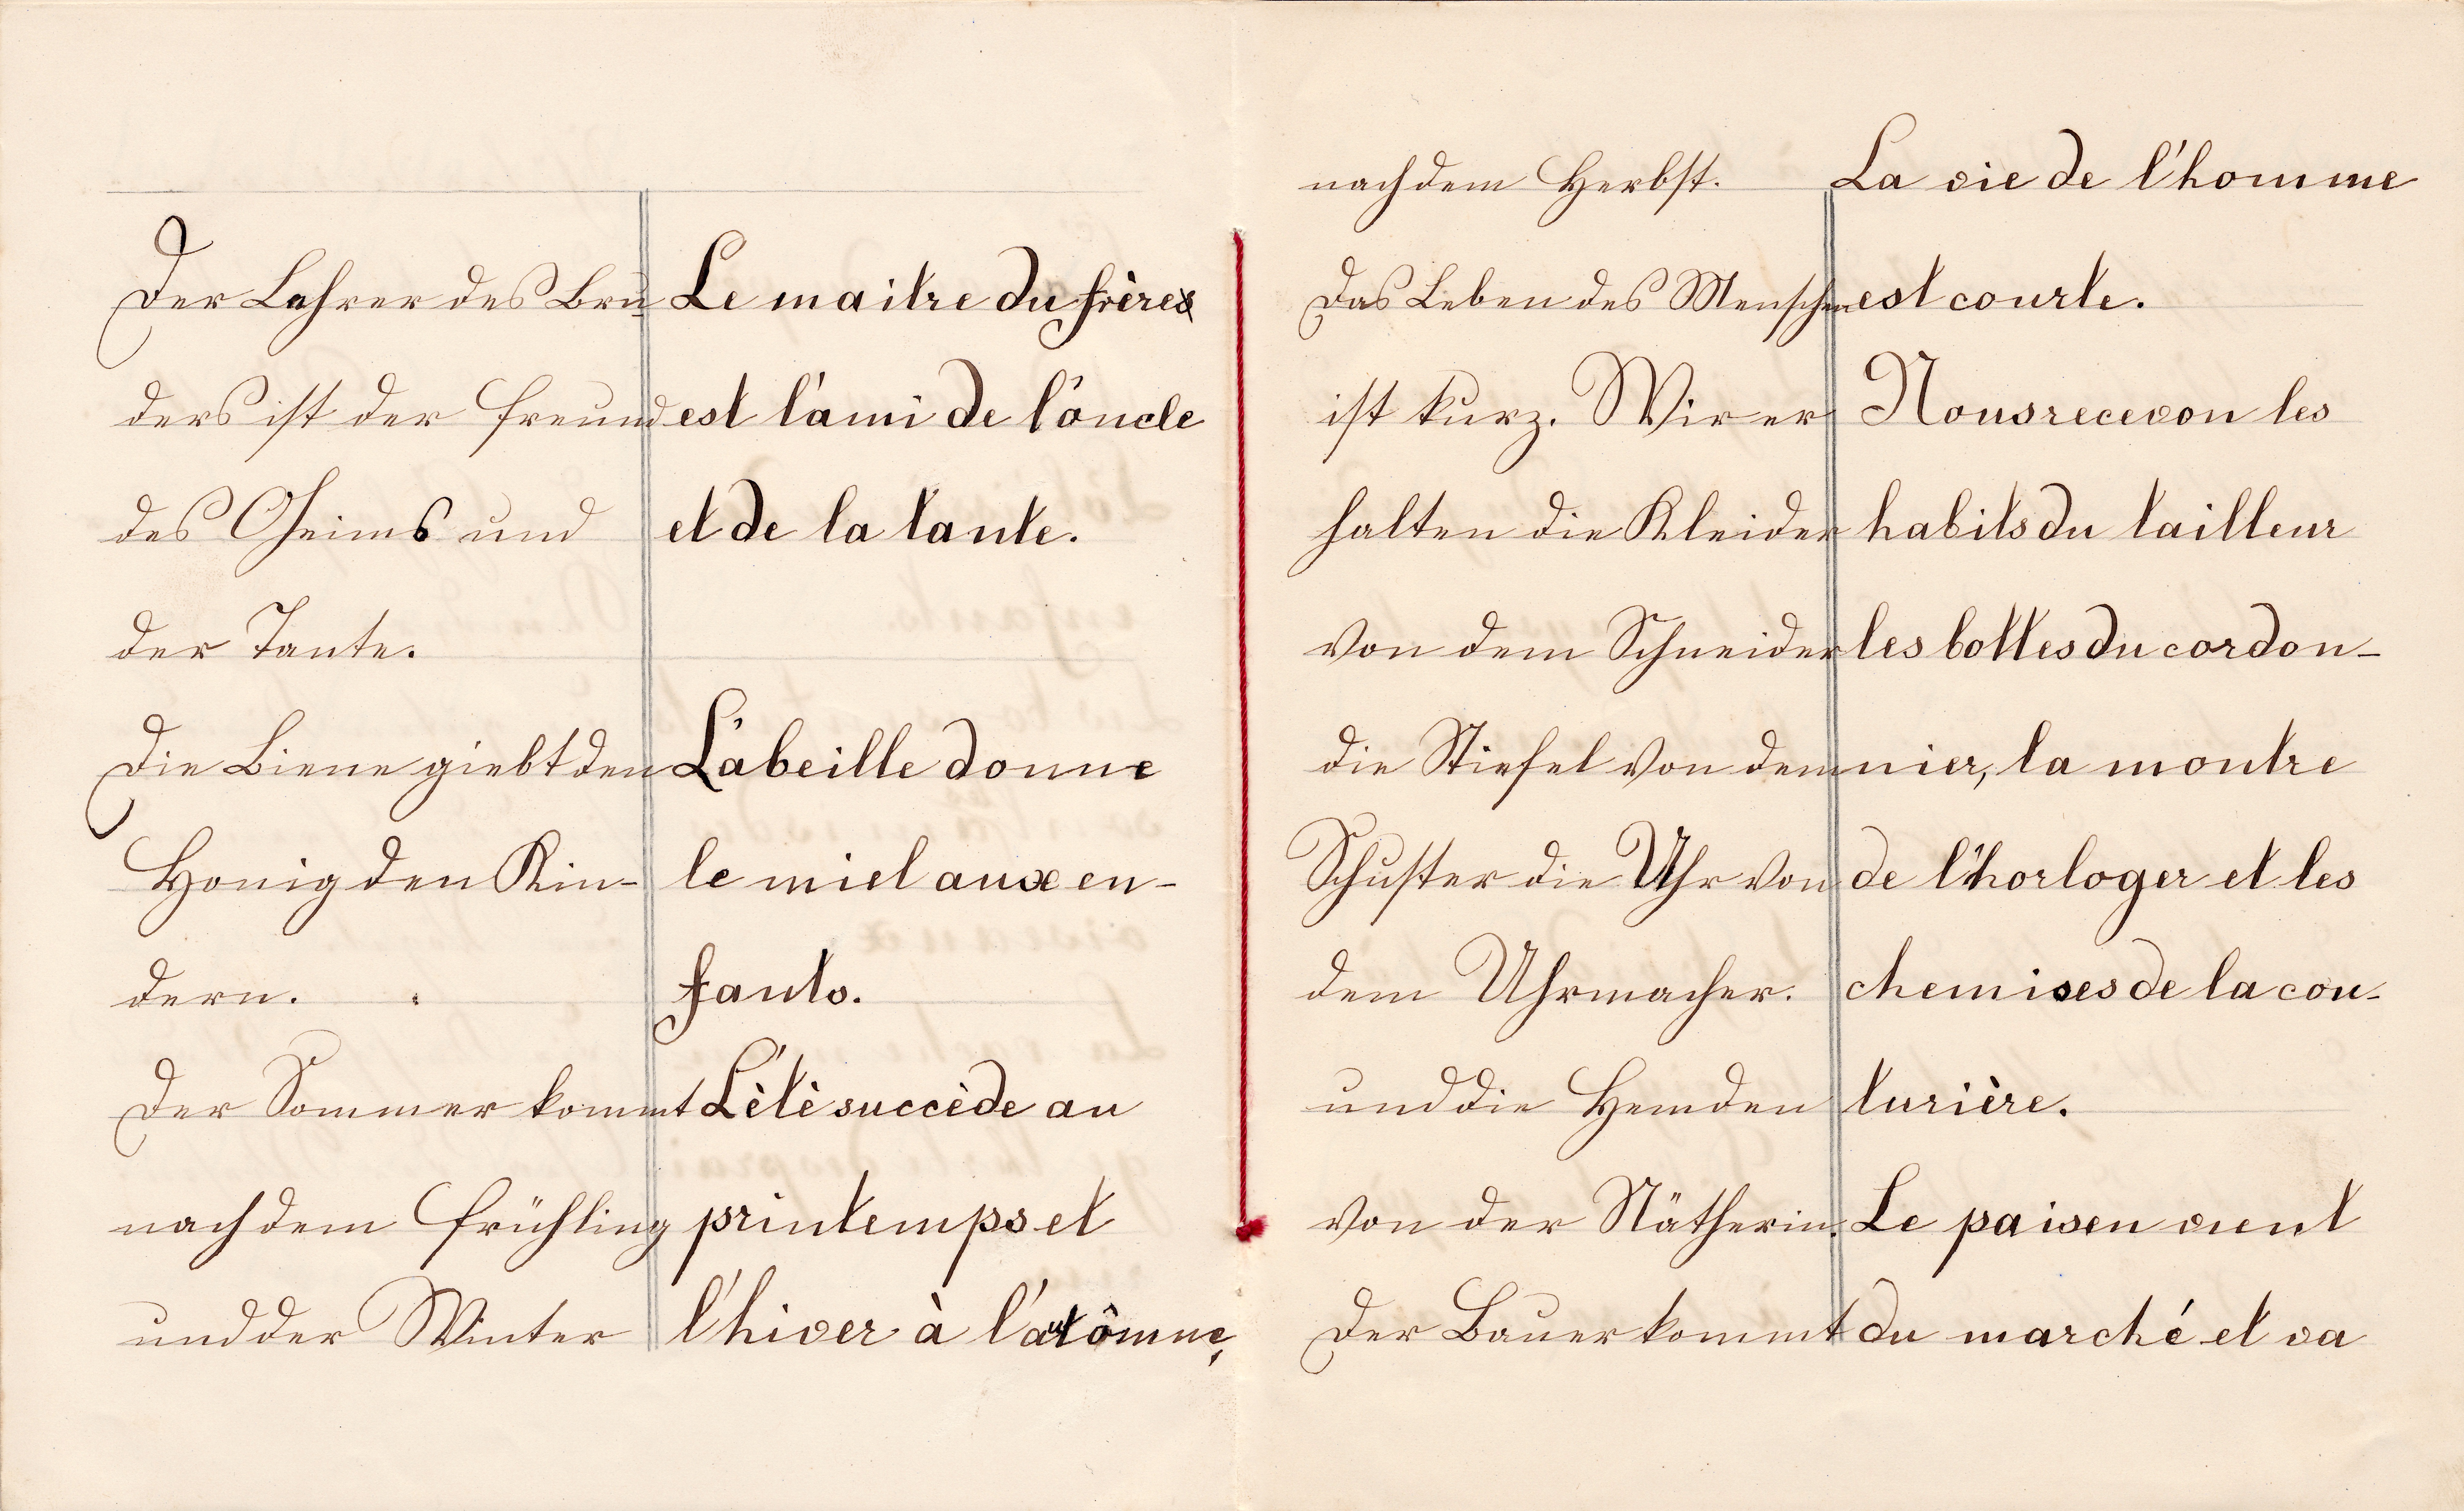 Der Lehrer des Bru
ders ist der Freund
des Oheims und
der Tante.
Die Biene giebt den
Honig den Kin-
dern.
Der Sommer kommt
nach dem Frühling
und der Winter
Le maitre du frère
est l'ami de l'oncle
et de la tante.
L'abeille donne
le miel aux en-
fants.
L'ètè succède au
printemps et
l'hiver à l'autômne,
nach dem Herbst.
Das Leben des Menschen
ist kurz. Wir er
halten die Kleider
von dem Schneider
die Stiefel von dem
Schuster die Uhr von
dem Uhrmacher.
und die Hemden
von der Nätherin.
Der Bauer kommt
La vie de l'homme
est courte.
Nous recevon les
habits du tailleur
les bottes du cordon-
nier, la montre
de l'horloger et les
chemises de la cou-
turière.
Le paisen vient
du marché et va